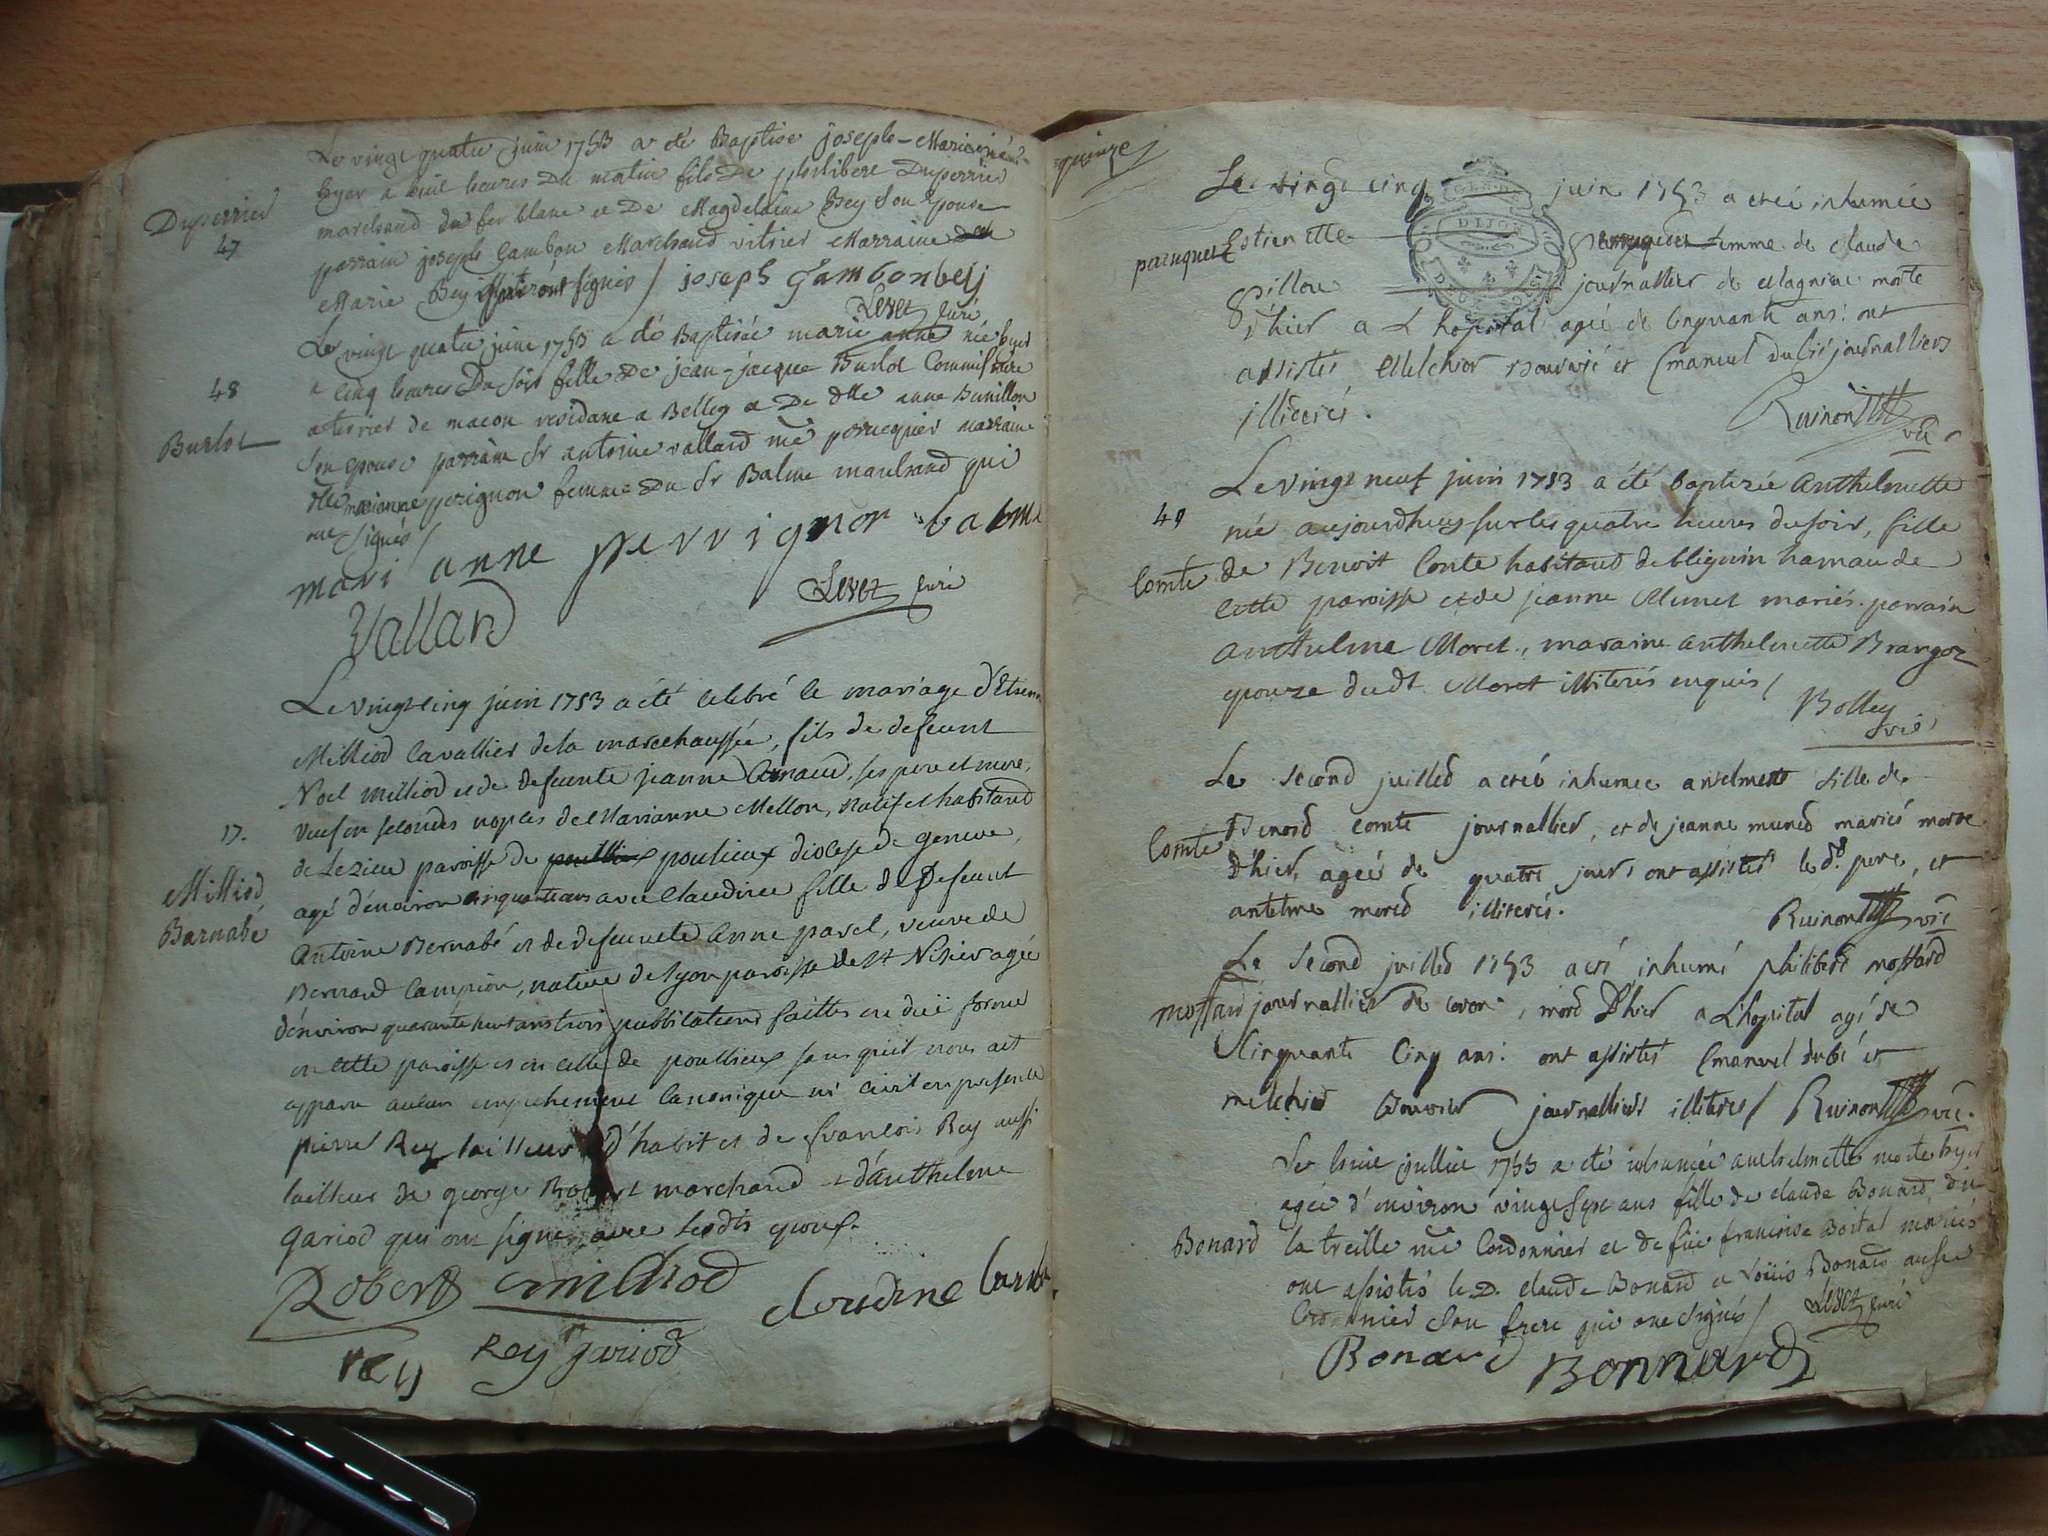 Duperrier
47
Le vingt quatre juin 1753 a été Baptisé joseph-Marie né
hyer a huit heures Du matin fils De philibert Duperrier
marchand du fer blanc et De Magdelaine Bey Son epouse
parrain joseph Gambon Marchand vitrier Marraine
Marie Bey qui ont signés / joseph Gambon beij
Levet Curé
48
Burlot
Le vingt quatre juin 1753 a été Baptisée marie anne née hyer
a cinq heures Du soir fille De jean-jacque Burlot Commissaire
a terrier de macon residant a Belley et De dlle anne Bunillon
Son epouse parrain Sr antoine vallard me peruquier marraine
dlle marianne perignon femme Du Sr Balme marchand qui
ont Signés /
mari anne perrignon balme
Vallard
Levet Curé
17.
Milliod
Barnabé
Le vingt cinq juin 1753 a été celebré le mariage d'Etienne
Milliod Cavallier de la marechaussée, fils de defeunt
Noel milliod et de defeunte jeanne Arnaud, ses pere et mere,
veuf en secondes nopces de Marianne Mellon, natif et habitand
de Lezieu paroisse de poulieux diocese de geneve,
agé d'environ cinquante ans avec Claudine fille de Defeunt
Antoine Bernabé et de defeunte Anne pavel, veuve de
Bernard Campion, native de lyon paroisse de St Nisier agée
d'environ quarante huit ans trois publications faittes en duë forme
en cette paroisse et en celle de poullieux sans qu'il nous ait
apparu aucun empechement Canonique ni civil en presence
pierre Rey tailleur d'habit et de francois Rey aussi
tailleur de george Robert marchand et d'anthelme
gariod qui ont signé avec lesdts epoux.
Robert milliod claudine
rey Rey gariod
quinze
paruquet
Le vingt cinq juin 1753 a etéé inhumée
DIJON
Estienette femme de claude
Gillou journallier de Magnieu morte
d'hier a L hopital agée de Cinquante ans: ont
assistés Melchior Bouvié et Emanuel dubié journalliers
illiterés.
Ruinon vic
49
Comte
Le vingt neuf juin 1753 a été baptizée Anthelmette
née aujourdhuy sur les quatre heures du soir, fille
de Benoit Conte habitand de bleguin hamau de
cette paroisse et de jeanne Munet mariés. parrain
Anthelme Moret, maraine anthelmette Brangoz
epouze dudt Moret illiterés enquis /
Bolley vic
Comte
Le second juilled a etéé inhumee anselmette fille de
Benord comte journallier, et de jeanne muned mariés morte
d'hier, agéé de quatre jours ont assistés le dt. pere, et
antelme mored illiterés.
Ruinon vic
mossard
Le second juilled 1753 a eté inhumé philiberd mossard
journallier de coron, mord D'hier a L'hopital agé de
Cinquante Cinq ans: ont assistés Emanuel dubié et
melchior Bouvier journalliers illiteres / Ruinon vic.
Bonard
Le huit juillet 1753 a été inhumée anthelmette morte hyer
agée d'environ vingt sept ans fille de claude Bonard dit
la treille me Cordonnier et de füe francoise Boital mariés
ont assistés le D. claude Bonard et Loüis Bonard aussi
Cordonnier Son frere qui ont signés / Levet Curé
Bonard Bonnard